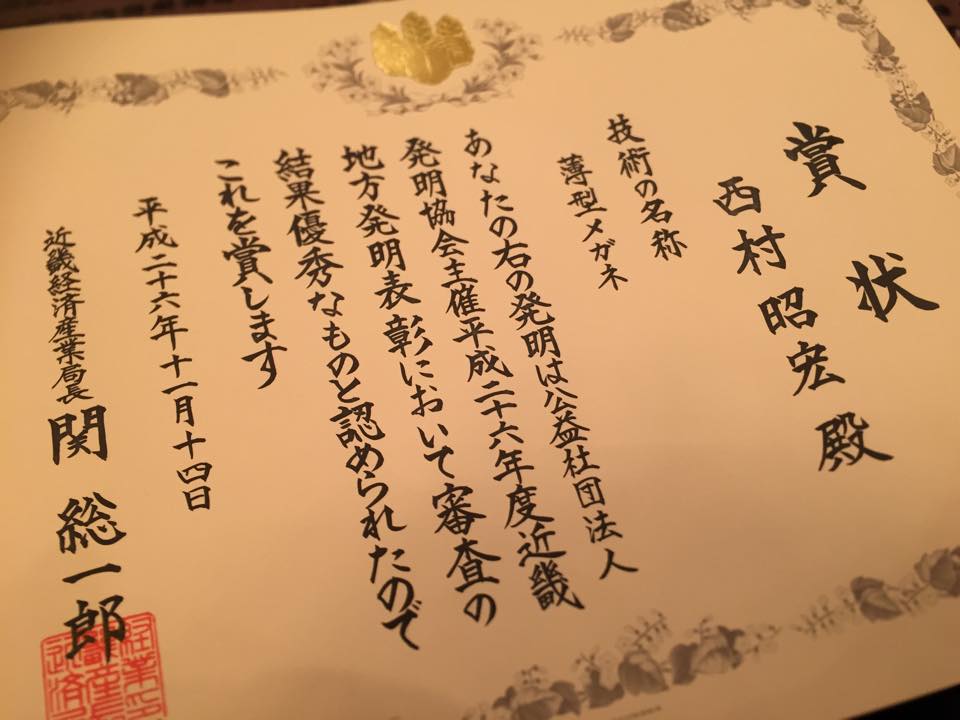 賞状
西村昭宏殿
技術の名称
薄型メガネ
あなたの右の発明は公益社団法人
発明協会主催平成二十六年度近畿
地方発明表彰において審査の
結果優秀なものと認められたので
これを賞します
平成二十六年十一月十四日
近畿経済産業局長
関総一郎